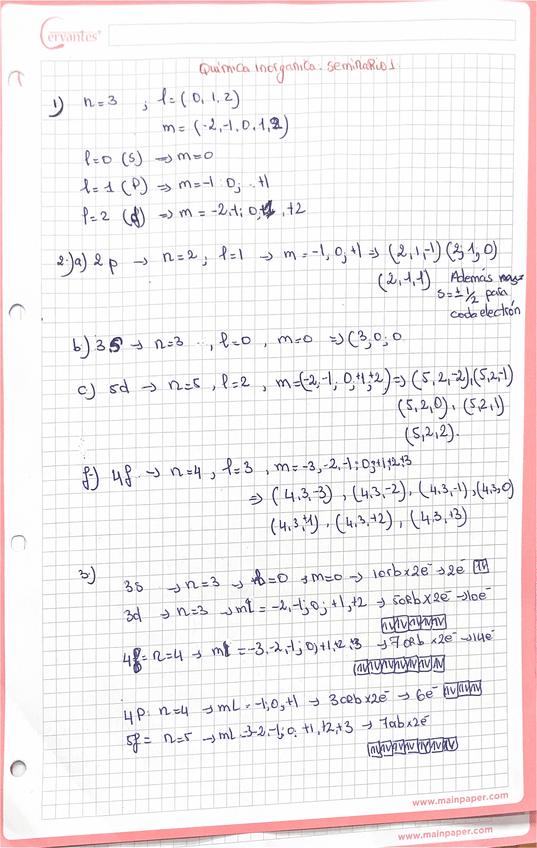 Cervantes
Química Inorgánica: Seminario 1
1) n=3 ; l=(0,1,2)
m=(-2,-1,0,1,2)
l=0 (s) ⇒ m=0
l=1 (p) ⇒ m=-1 0; +1
l=2 (d) ⇒ m=-2,-1; 0, +1, +2
2)a) 2p → n=2; l=1 → m=-1,0,+1 ⇒ (2,1,-1) (2,1,0)
(2,1,1) Además
s=±1/2 para
cada electrón
b) 3s → n=3 , l=0 , m=0 ⇒ (3,0,0
c) 5d → n=5 , l=2 , m=(-2,-1, 0,+1,+2) ⇒ (5,2,-2),(5,2,-1)
(5,2,0), (5,2,1)
(5,2,2).
f-) 4f → n=4, l=3 , m=-3,-2,-1,0,+1,+2,+3
⇒ (4,3,-3), (4,3,-2), (4,3,-1), (4,3,0)
(4,3,+1), (4,3,+2), (4,3,+3)
3)
3s → n=3 → l=0 → m=0 → 1orb x2e⁻ → 2e⁻
3d → n=3 → ml = -2,-1,0,+1,+2 → 5orb x 2e⁻ → 10e⁻
4f= n=4 → ml=-3,-2,-1,0,+1,+2,+3 → 7orb x2e⁻ → 14e⁻
4p: n=4 → mL = -1,0,+1 → 3orb x2e⁻ → 6e⁻
5f= n=5 → mL -3-2,-1,0, +1,+2,+3 → 7ab x2e⁻
www.mainpaper.com
www.mainpaper.com